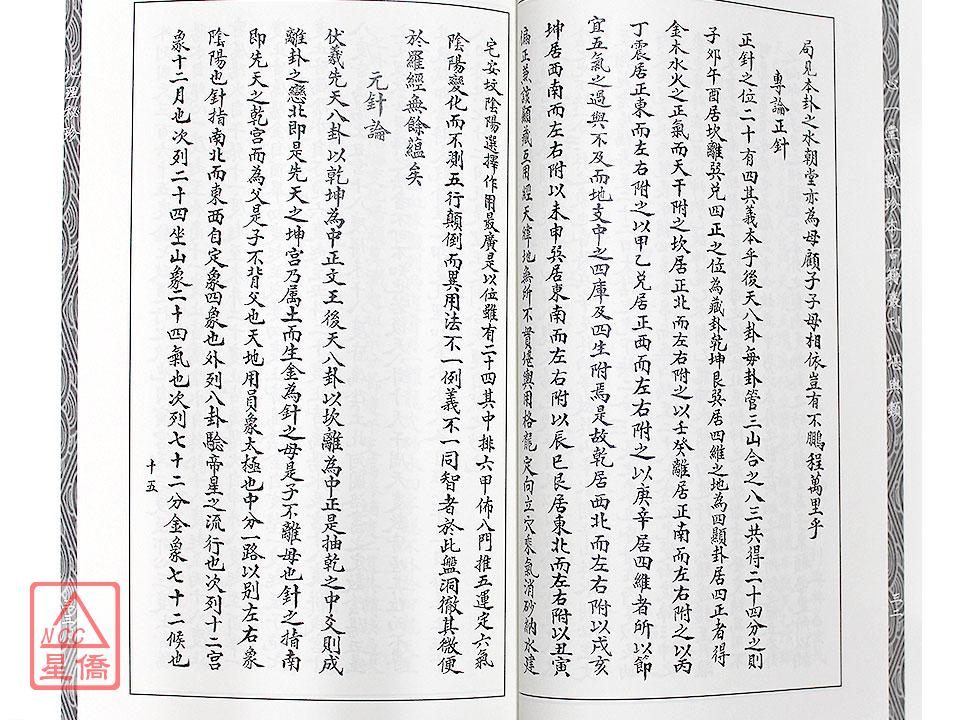 局見本卦之水朝堂亦為母顧子子母相依豈有不鵬程萬里乎
專論正針
正針之位二十有四其義本乎後天八卦每卦管三山合之八三共得二十四分之則
子午卯酉居坎離巽兌四正之位為藏卦乾坤艮巽居四維之地為四顯卦居四正者得
金木水火之正氣而天干附之坎居正北而左右附之以壬癸離居正南而左右附之以丙
丁震居正東而左右附之以甲乙兌居正西而左右附之以庚辛居四維者所以節
宜五氣之過與不及而地支中之四庫及四生附焉是故乾居西北而左右附以戌亥
坤居西南而左右附以未申巽居東南而左右附以辰巳艮居東北而左右附以丑寅
偏正兼該顯藏互用經天緯地無所不貫堪輿用格龍定向立穴乘氣消砂納水建
宅安墳陰陽選擇作用最廣是以位雖有二十四其中排六甲佈八門推五運定六氣
陰陽變化而不測五行顛倒而異用法不一例義不一同智者於此盤洞徹其微便
於羅經無餘蘊矣
元針論
伏羲先天八卦以乾坤為中正文王後天八卦以坎離為中正是抽乾之中爻則成
離卦之戀北即是先天之坤宮乃屬土而生金為針之母是子不離母也針之指南
即先天之乾宮而為父是子不背父也天地用員象太極也中分一路以別左右象
陰陽也針指南北而東西自定象四象也外列八卦驗帝星之流行也次列十二宮
象十二月也次列二十四坐山象二十四氣也次列七十二分金象七十二候也
十五
NCC
星僑